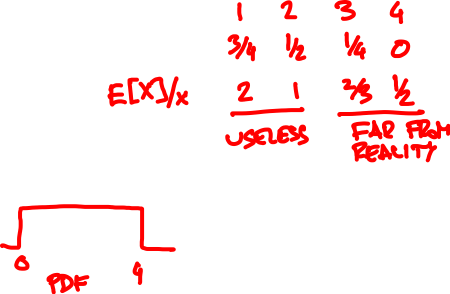 1 2 3 4
3/4 1/2 1/4 0
E[X]/x 2 1 2/3 1/2
USELESS FAR FROM
REALITY
0 4
PDF